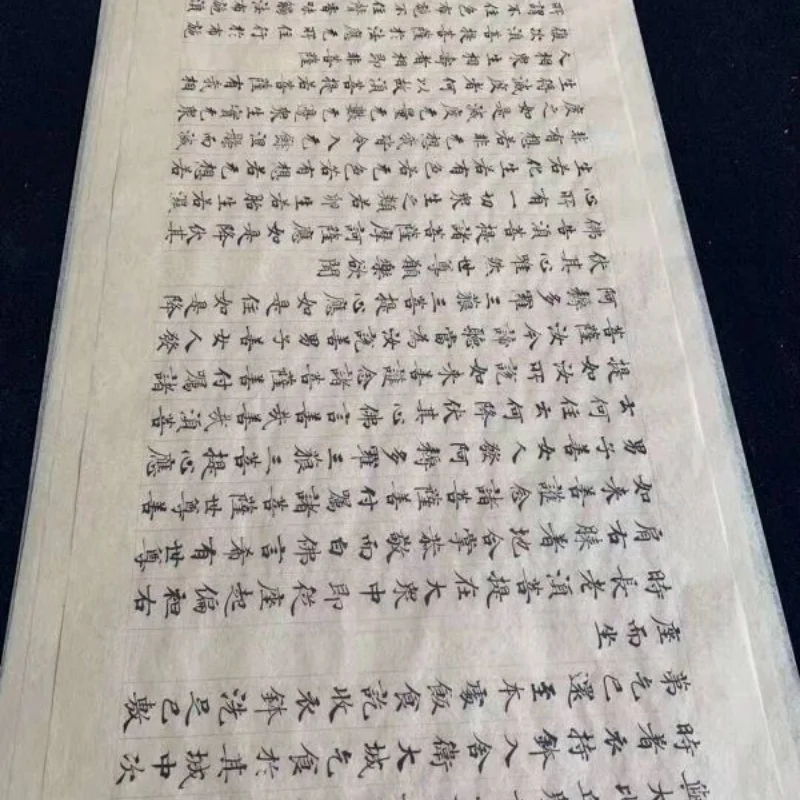 時著衣持鉢入舍衛大城乞食於其城中次
第乞已還至本處飯食訖收衣鉢洗足已敷
座而坐
時長老須菩提在大眾中即從座起偏袒右
肩右膝著地合掌恭敬而白佛言希有世尊
如來善護念諸菩薩善付囑諸菩薩世尊善
男子善女人發阿耨多羅三藐三菩提心應
云何住云何降伏其心佛言善哉善哉須菩
提如汝所說如來善護念諸菩薩善付囑諸
菩薩汝今諦聽當為汝說善男子善女人發
阿耨多羅三藐三菩提心應如是住如是降
伏其心唯然世尊願樂欲聞
佛告須菩提諸菩薩摩訶薩應如是降伏其
心所有一切眾生之類若卵生若胎生若濕
生若化生若有色若无色若有想若无想若
非有想若非无想我皆令入无餘涅槃而滅
度之如是滅度无量无數无邊眾生實无眾
生得滅度者何以故須菩提若菩薩有我相
人相眾生相壽者相即非菩薩
復次須菩提菩薩於法應无所住行於布施
所謂不住色布施不住聲香味觸法布施須